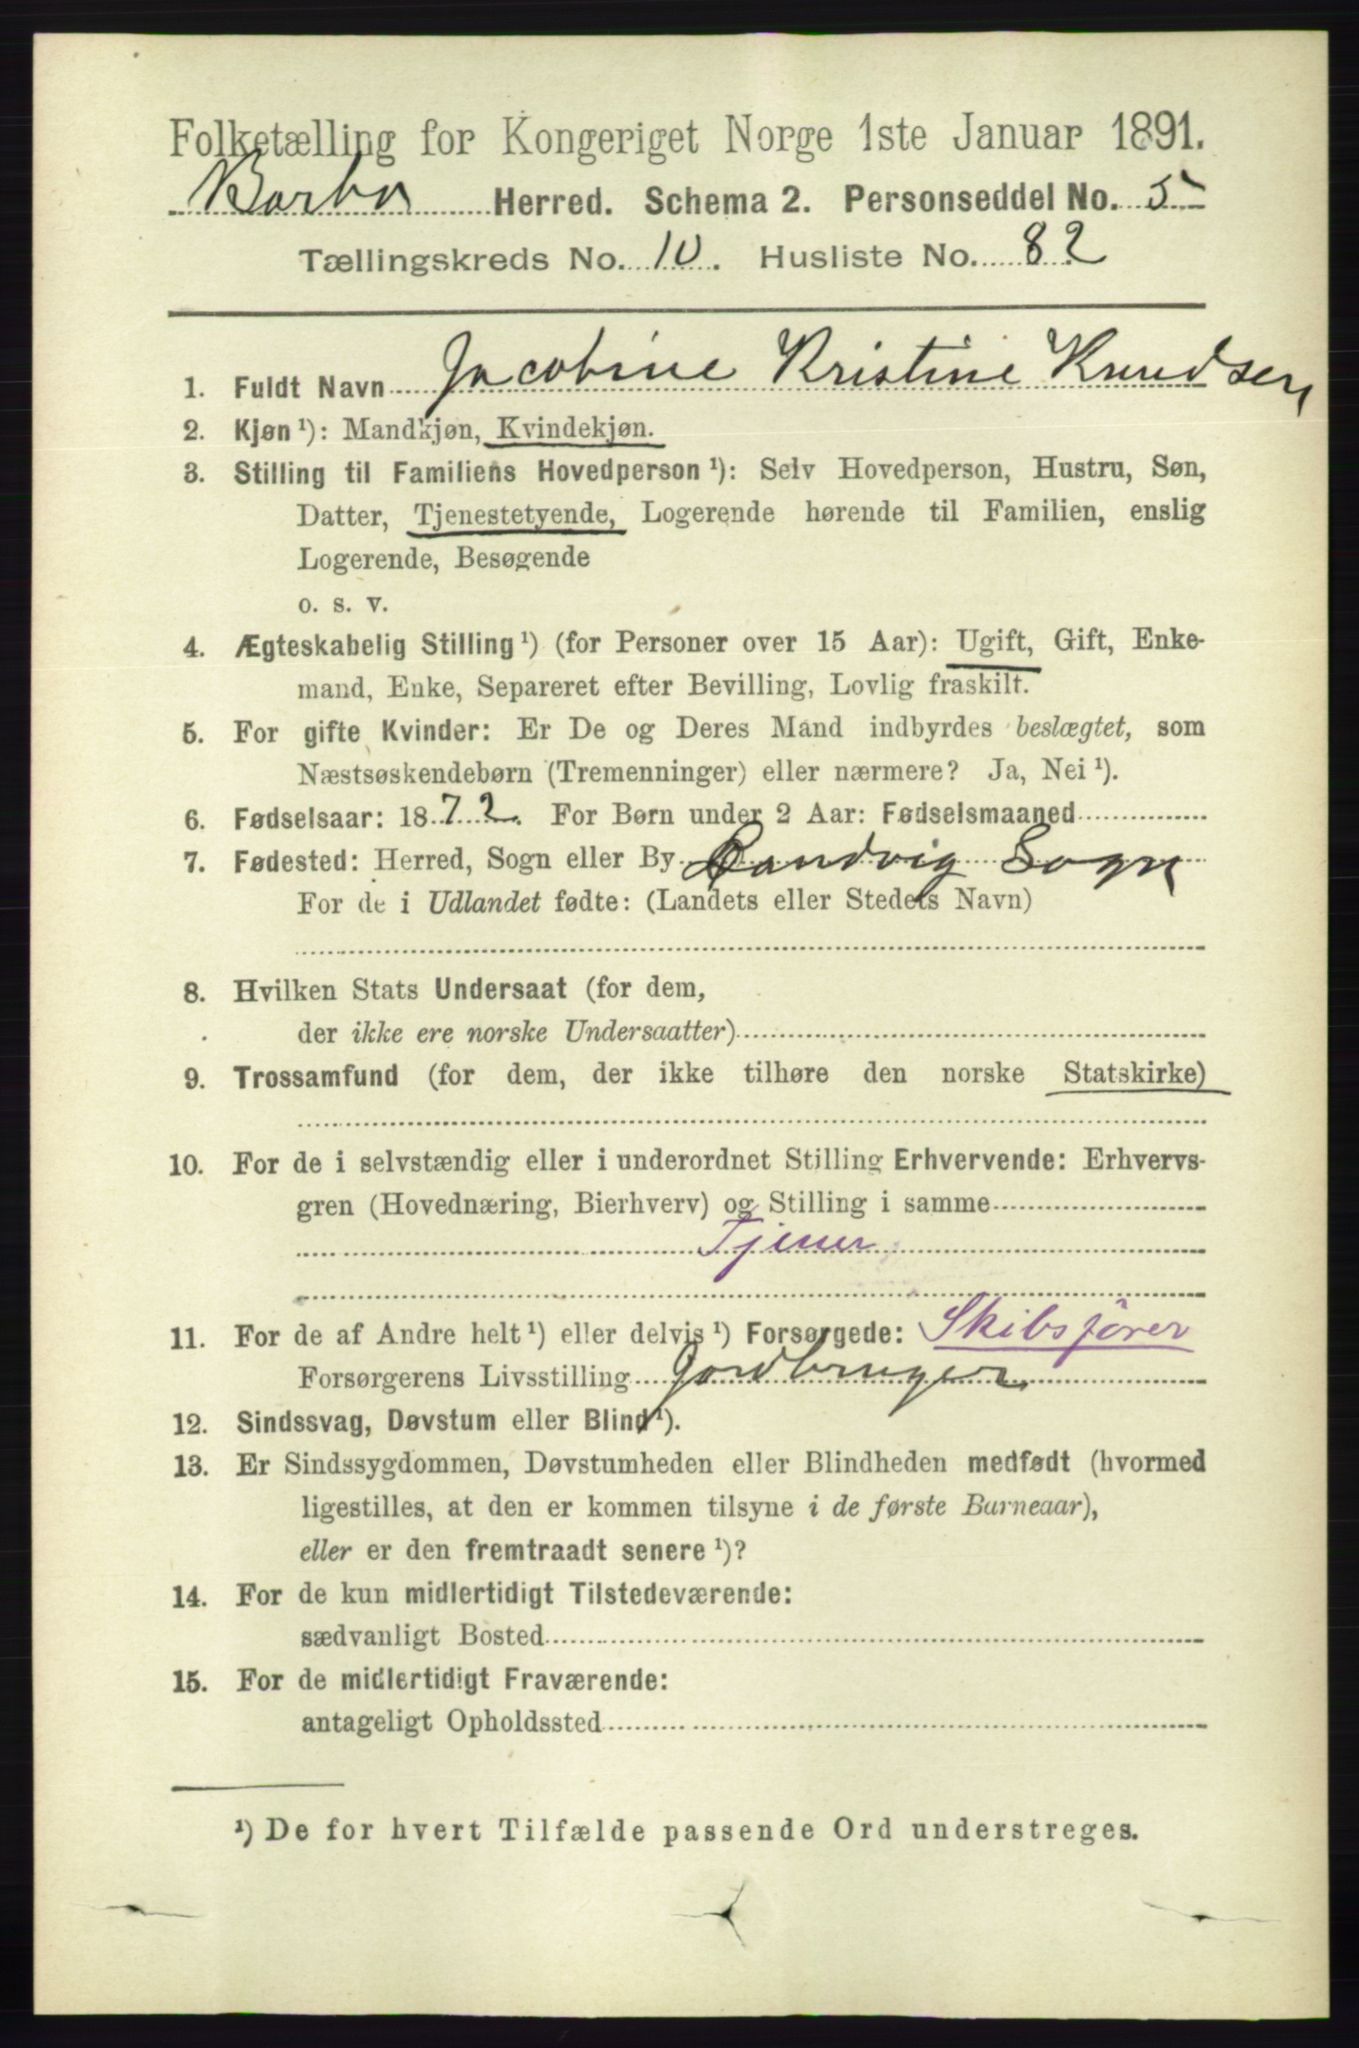 Folketælling for Kongeriget Norge 1ste Januar 1891.
Barbo Herred. Schema 2. Personseddel No. 5
Tællingskreds No. 10. Husliste No. 82
1. Fuldt Navn Jacobine Kristine Knudsen
2. Kjøn ¹): Mandkjøn, Kvindekjøn.
3. Stilling til Familiens Hovedperson ¹): Selv Hovedperson, Hustru, Søn,
Datter, Tjenestetyende, Logerende hørende til Familien, enslig
Logerende, Besøgende
o. s. v.
4. Ægteskabelig Stilling ¹) (for Personer over 15 Aar): Ugift, Gift, Enke-
mand, Enke, Separeret efter Bevilling, Lovlig fraskilt.
5. For gifte Kvinder: Er De og Deres Mand indbyrdes beslægtet, som
Næstsøskendebørn (Tremenninger) eller nærmere? Ja, Nei ¹).
6. Fødselsaar: 1872. For Børn under 2 Aar: Fødselsmaaned
7. Fødested: Herred, Sogn eller By Landvig Sogn
For de i Udlandet fødte: (Landets eller Stedets Navn)
8. Hvilken Stats Undersaat (for dem,
der ikke ere norske Undersaatter)
9. Trossamfund (for dem, der ikke tilhøre den norske Statskirke)
10. For de i selvstændig eller i underordnet Stilling Erhvervende: Erhvervs-
gren (Hovednæring, Bierhverv) og Stilling i samme
Tjener
11. For de af Andre helt ¹) eller delvis ¹) Forsørgede: Skibsfører
Forsørgerens Livsstilling Jordbruger
12. Sindssvag, Døvstum eller Blind ¹).
13. Er Sindssygdommen, Døvstumheden eller Blindheden medfødt (hvormed
ligestilles, at den er kommen tilsyne i de første Barneaar),
eller er den fremtraadt senere ¹)?
14. For de kun midlertidigt Tilstedeværende:
sædvanligt Bosted
15. For de midlertidigt Fraværende:
antageligt Opholdssted
¹) De for hvert Tilfælde passende Ord understreges.